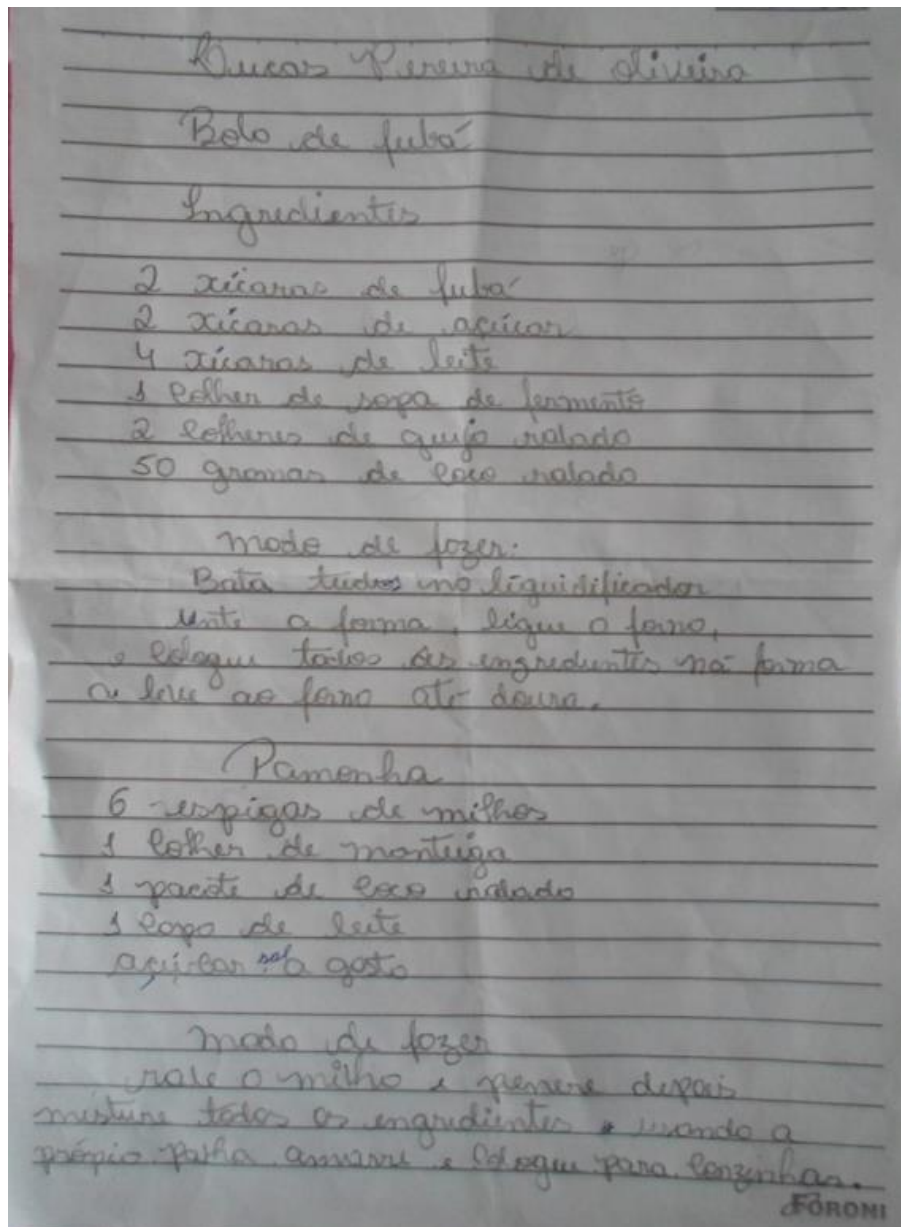 Lucas Pereira de Oliveira
Bolo de fubá
Ingredientis
2 xícaras de fubá
2 xícaras de açúcar
4 xícaras de leite
1 colher de sopa de fermento
2 colheres de queijo ralado
50 gramas de coco ralado
modo de fazer:
Bata tudo no liquidificador
unte a forma, ligue o forno,
e coloque todos os ingredientis na forma
a leve ao forno até doura.
Pamonha
6 espigas de milhos
1 colher de manteiga
1 pacote de coco ralado
1 copo de leite
açúcar sal a gosto
modo de fazer
rale o milho e peneire depois
misture todos os ingredientes e usando a
própio palha amarre e coloque para conzinhar.
FORONI